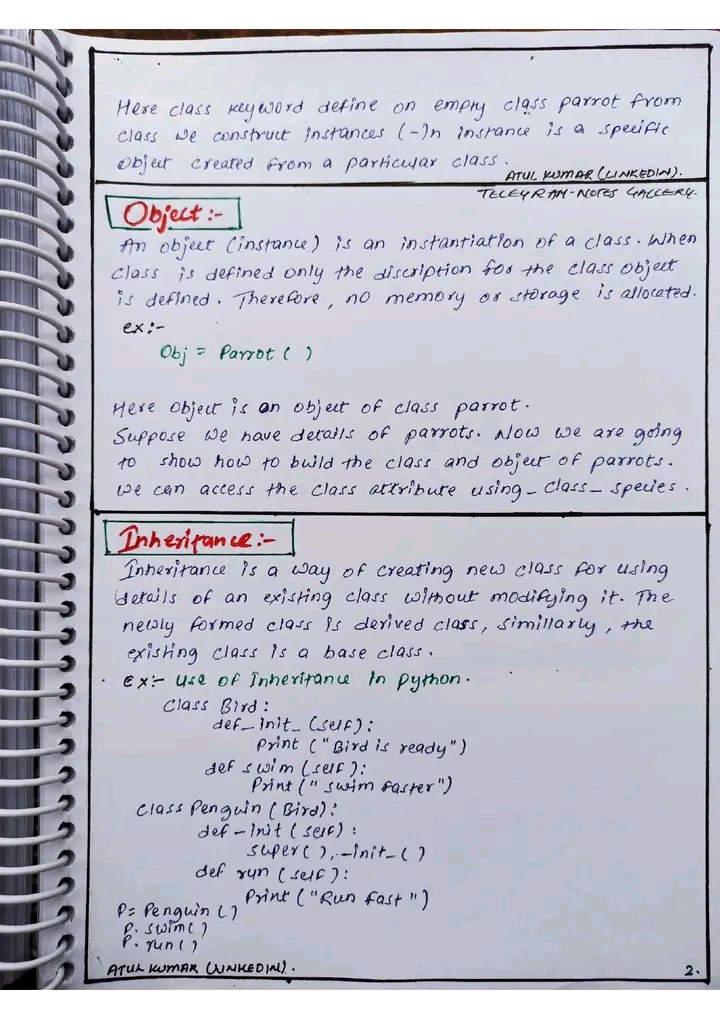 Here class keyword define on empty class parrot from
class we construct instances (-)n instance is a specific
object created from a particular class.
ATUL KUMAR (LINKEDIN).
TELEGRAM-NOTES GALLERY.
Object:-
An object (instance) is an instantiation of a class. When
class is defined only the discription for the class object
is defined. Therefore, no memory or storage is allocated.
ex:-
Obj = Parrot ( )
Here object is an object of class parrot.
Suppose we have details of parrots. Now we are going
to show how to build the class and object of parrots.
We can access the class attribute using _class_ species.
Inheritance:-
Inheritance is a way of creating new class for using
details of an existing class without modifying it. The
newly formed class is derived class, simillarly, the
existing class is a base class.
Ex:- use of Inheritance in python.
Class Bird:
def_init_(self):
Print ("Bird is ready")
def swim (self):
Print (" swim faster")
Class Penguin (Bird):
def -init (self):
super( ).-init-( )
def run (self):
Print ("Run fast")
P= Penguin ( )
P. swim( )
P. run( )
ATUL KUMAR (LINKEDIN).
2.